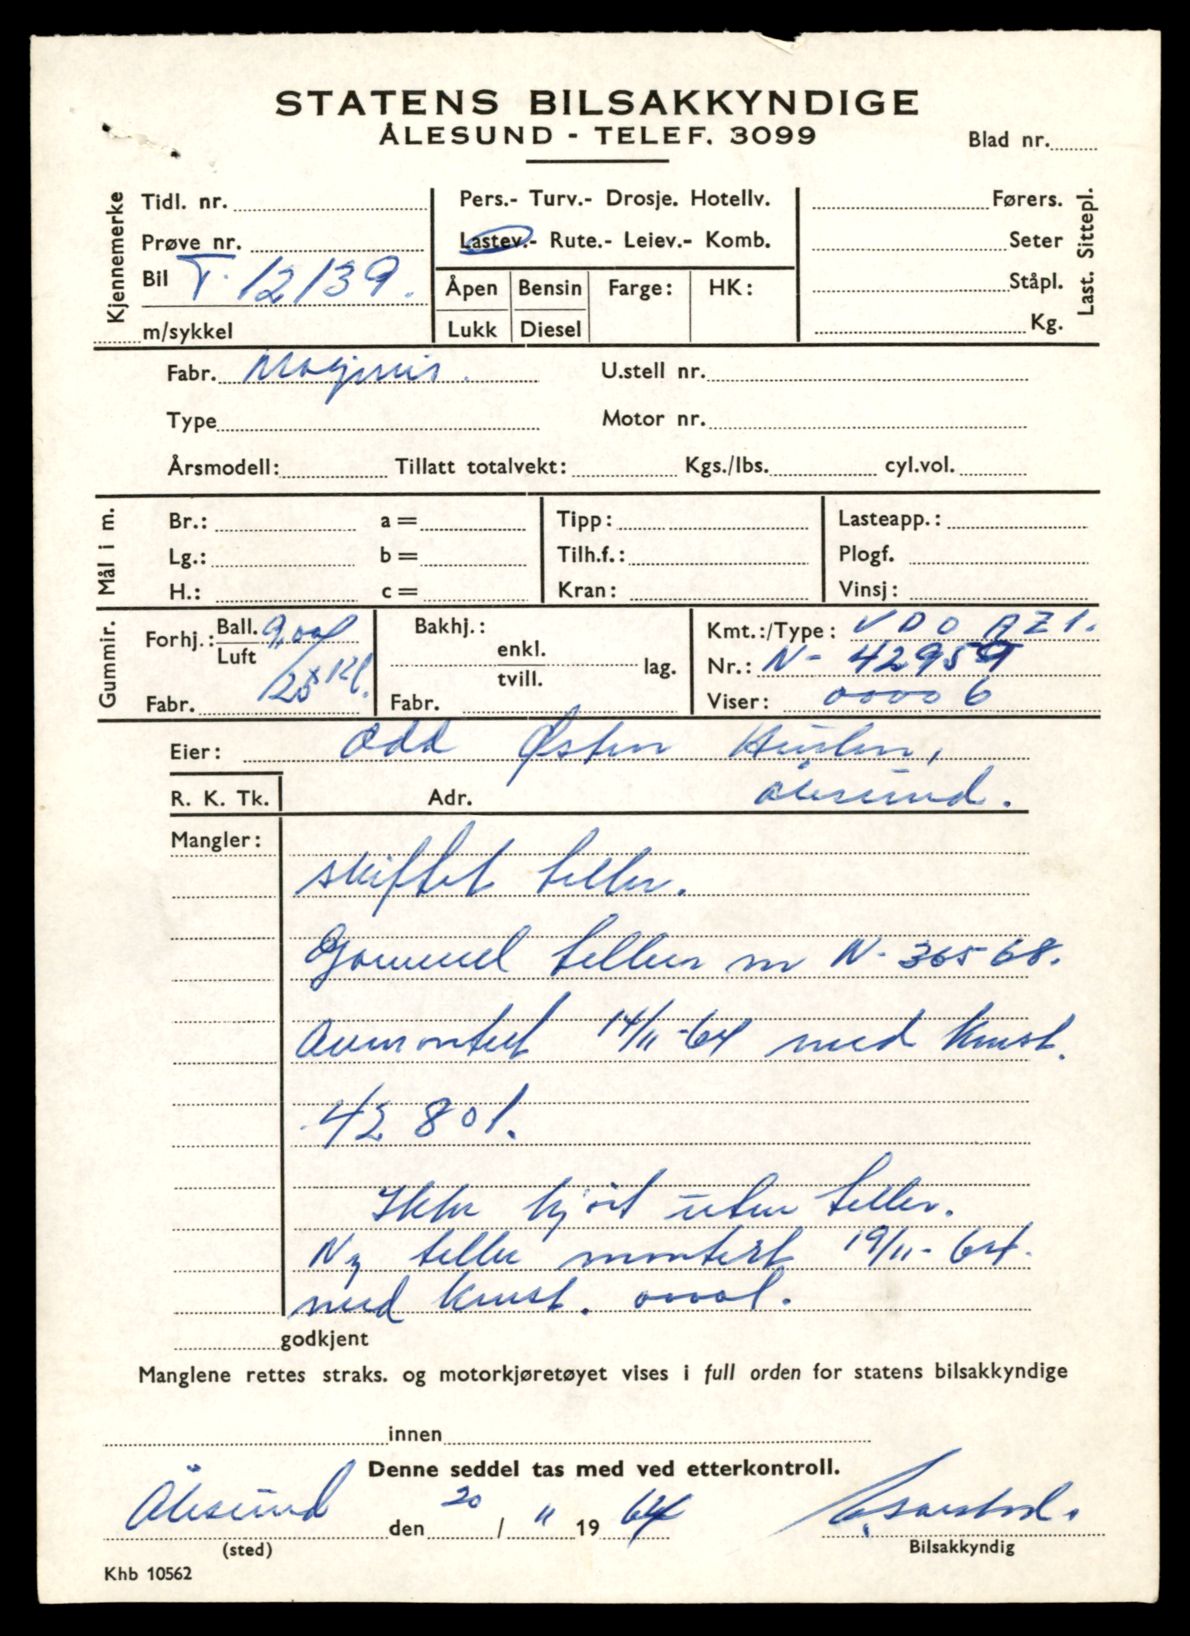 STATENS BILSAKKYNDIGE
ÅLESUND - TELEF. 3099
Blad nr.
Kjennemerke
Tidl. nr.
Prøve nr.
Bil T-12139.
m/sykkel
Pers.- Turv.- Drosje. Hotellv.
Lastev.- Rute.- Leiev.- Komb.
Åpen Bensin Farge: HK:
Lukk Diesel
Førers.
Seter
Ståpl.
Kg.
Last. Sittepl.
Fabr. Magirus. U.stell nr.
Type Motor nr.
Årsmodell: Tillatt totalvekt: Kgs./lbs. cyl.vol.
Mål i m.
Br.: a = Tipp: Lasteapp.:
Lg.: b = Tilh.f.: Plogf.
H.: c = Kran: Vinsj:
Gummir.
Forhj.: Ball. Luft 9,00
20
Fabr.
Bakhj.: enkl. tvill. lag.
Fabr.
Kmt.:/Type: VDO AZ1.
Nr.: N- 42959
Viser: 00006
Eier: Odd Østen
R. K. Tk. Adr. Ålesund.
Mangler:
skiftet teller.
Gammel teller nr N- 36568.
avmontert 14/11-64 med kmst.
42801.
Ikke kjørt uten teller.
Ny teller montert 19/11-64.
med kmst. 00001.
godkjent
Manglene rettes straks. og motorkjøretøyet vises i full orden for statens bilsakkyndige
innen
Denne seddel tas med ved etterkontroll.
Ålesund den 20 / 11 19 64
(sted) Bilsakkyndig
Khb 10562